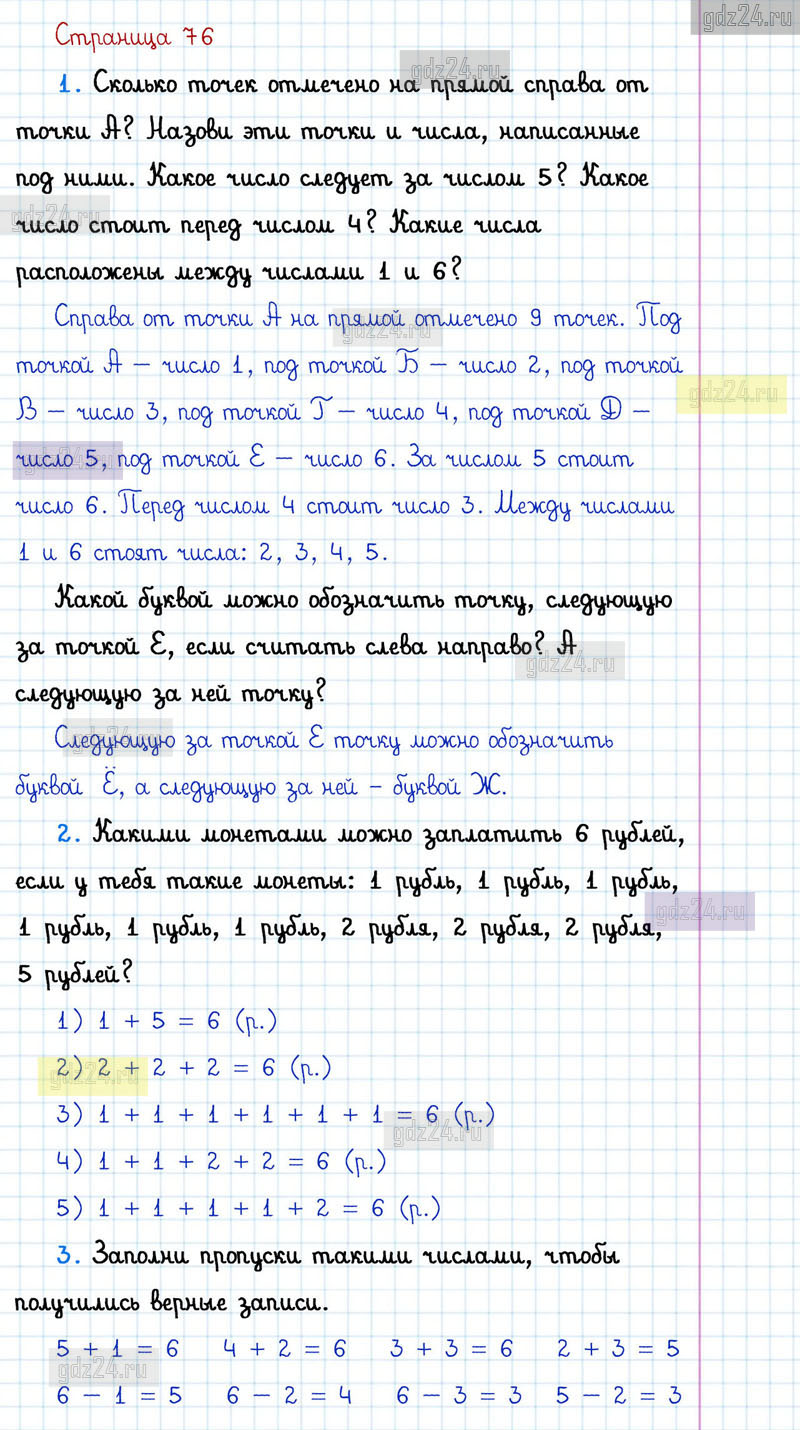 gdz24.ru
Страница 76
gdz24.ru
1. Сколько точек отмечено на прямой справа от
точки А? Назови эти точки и числа, написанные
под ними. Какое число следует за числом 5? Какое
gdz24.ru
число стоит перед числом 4? Какие числа
расположены между числами 1 и 6?
Справа от точки А на прямой отмечено 9 точек. Под
gdz24.ru
точкой А – число 1, под точкой Б – число 2, под точкой
gdz24.ru
В – число 3, под точкой Г – число 4, под точкой Д –
число 5, под точкой Е – число 6. За числом 5 стоит
gdz24.ru
число 6. Перед числом 4 стоит число 3. Между числами
1 и 6 стоят числа: 2, 3, 4, 5.
Какой буквой можно обозначить точку, следующую
за точкой Е, если считать слева направо? А
gdz24.ru
следующую за ней точку?
Следующую за точкой Е точку можно обозначить
gdz24.ru
буквой Ё, а следующую за ней – буквой Ж.
2. Какими монетами можно заплатить 6 рублей,
если у тебя такие монеты: 1 рубль, 1 рубль, 1 рубль,
gdz24.ru
1 рубль, 1 рубль, 1 рубль, 2 рубля, 2 рубля, 2 рубля,
5 рублей?
1) 1 + 5 = 6 (р.)
2) 2 + 2 + 2 = 6 (р.)
gdz24.ru
3) 1 + 1 + 1 + 1 + 1 + 1 = 6 (р.)
gdz24.ru
4) 1 + 1 + 2 + 2 = 6 (р.)
5) 1 + 1 + 1 + 1 + 2 = 6 (р.)
3. Заполни пропуски такими числами, чтобы
получились верные записи.
5 + 1 = 6 4 + 2 = 6 3 + 3 = 6 2 + 3 = 5
gdz24.ru
6 – 1 = 5 6 – 2 = 4 6 – 3 = 3 5 – 2 = 3